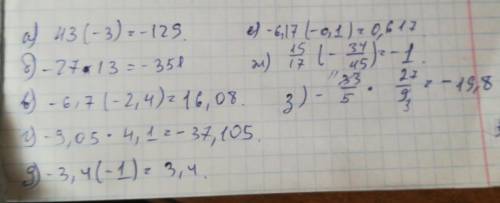 а) 43(-3) = -129.
б) -27·13 = -351
в) -6,7(-2,4) = 16,08.
г) -9,05 · 4,1 = -37,105.
д) -3,4(-1) = 3,4.
е) -6,17(-0,1) = 0,617
ж) 15/17 (-34/45) = -1
з) - 33/5 · 27/9 3 = -19,8